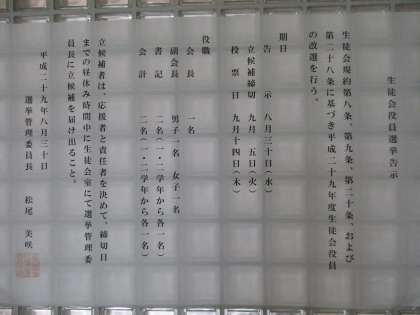 生徒会役員選挙告示
生徒会規約第八条、第九条、第二十条、および
第二十八条に基づき平成二十九年度生徒会役員
の改選を行う。
期日
告示 八月三十日(水)
立候補締切 九月 五日(火)
投票日 九月十四日(木)
役職
会長 一名
副会長 男子一名 女子一名
書記 二名(一・二学年から各一名)
会計 二名(一・二学年から各一名)
立候補者は、応援者と責任者を決めて、締切日
までの昼休み時間中に生徒会室にて選挙管理委
員長に立候補を届け出ること。
平成二十九年八月三十日
選挙管理委員長 松尾 美咲